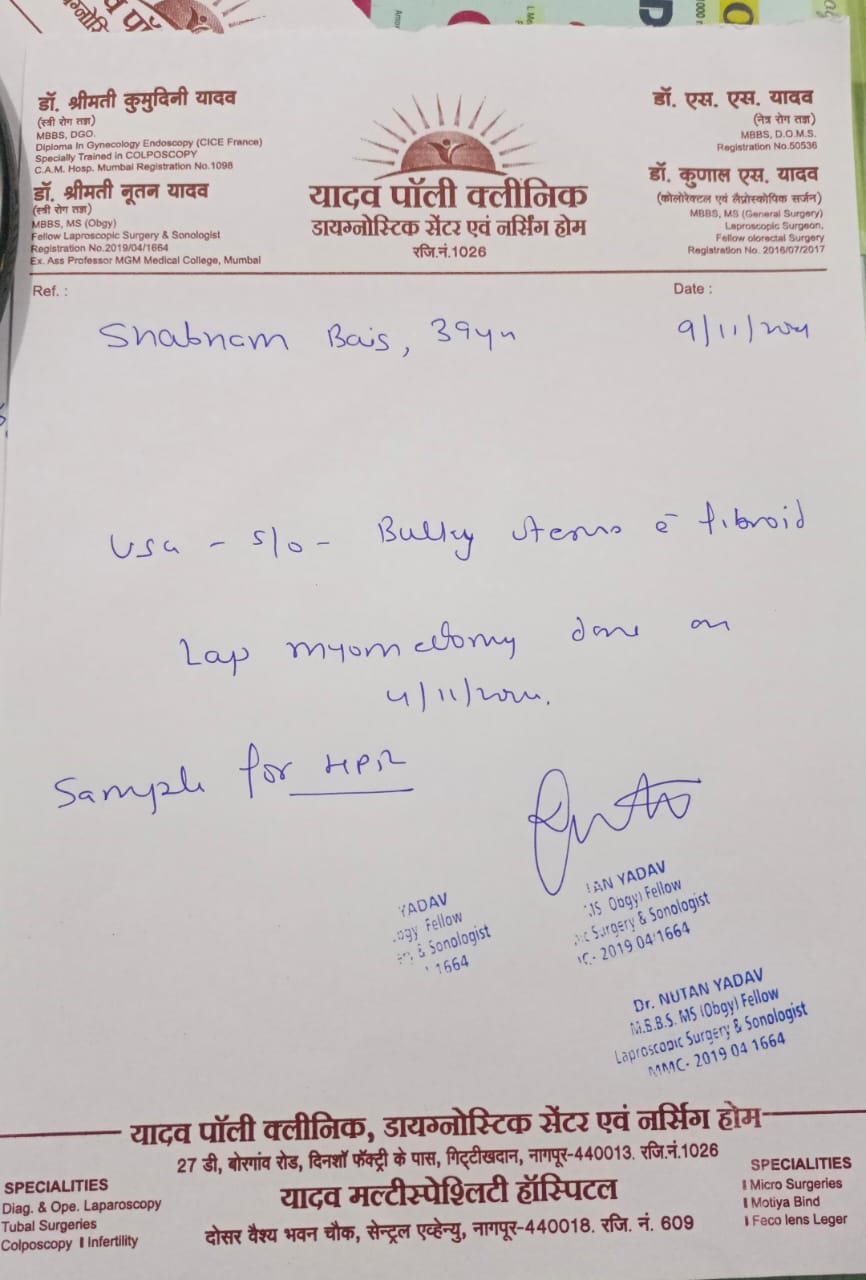 डॉ. श्रीमती कुमुदिनी यादव
(स्त्री रोग तज्ञ)
MBBS, DGO.
Diploma In Gynecology Endoscopy (CICE France)
Specially Trained in COLPOSCOPY
C.A.M. Hosp. Mumbai Registration No.1098
डॉ. श्रीमती नूतन यादव
(स्त्री रोग तज्ञ)
MBBS, MS (Obgy)
Fellow Laproscopic Surgery & Sonologist
Registration No.2019/04/1664
Ex. Ass Professor MGM Medical College, Mumbai
यादव पॉली क्लीनिक
डायग्नोस्टिक सेंटर एवं नर्सिंग होम
रजि.नं.1026
डॉ. एस. एस. यादव
(नेत्र रोग तज्ञ)
MBBS, D.O.M.S.
Registration No.50536
डॉ. कुणाल एस. यादव
(कोलोरेक्टल एवं लैप्रोस्कोपिक सर्जन)
MBBS, MS (General Surgery)
Laproscopic Surgeon,
Fellow olorectal Surgery
Registration No. 2016/07/2017
Ref. :
Date :
Shabnam Bais, 39yr
9/11/2024
USG - S/O - Bulky uterus c̄ fibroid
Lap myomectomy done on
4/11/2024.
Sample for HPR
YADAV
ogy Fellow
& Sonologist
1664
AN YADAV
MS Obgy) Fellow
Surgery & Sonologist
C- 2019 04 1664
Dr. NUTAN YADAV
M.B.B.S. MS (Obgy) Fellow
Laproscopic Surgery & Sonologist
MMC- 2019 04 1664
यादव पॉली क्लीनिक, डायग्नोस्टिक सेंटर एवं नर्सिंग होम
27 डी, बोरगांव रोड, दिनशॉ फॅक्ट्री के पास, गिट्टीखदान, नागपूर-440013. रजि.नं.1026
यादव मल्टीस्पेश्लिटी हॉस्पिटल
दोसर वैश्य भवन चौक, सेन्ट्रल एव्हेन्यु, नागपूर-440018. रजि. नं. 609
SPECIALITIES
Diag. & Ope. Laparoscopy
Tubal Surgeries
Colposcopy Infertility
SPECIALITIES
Micro Surgeries
Motiya Bind
Feco lens Leger